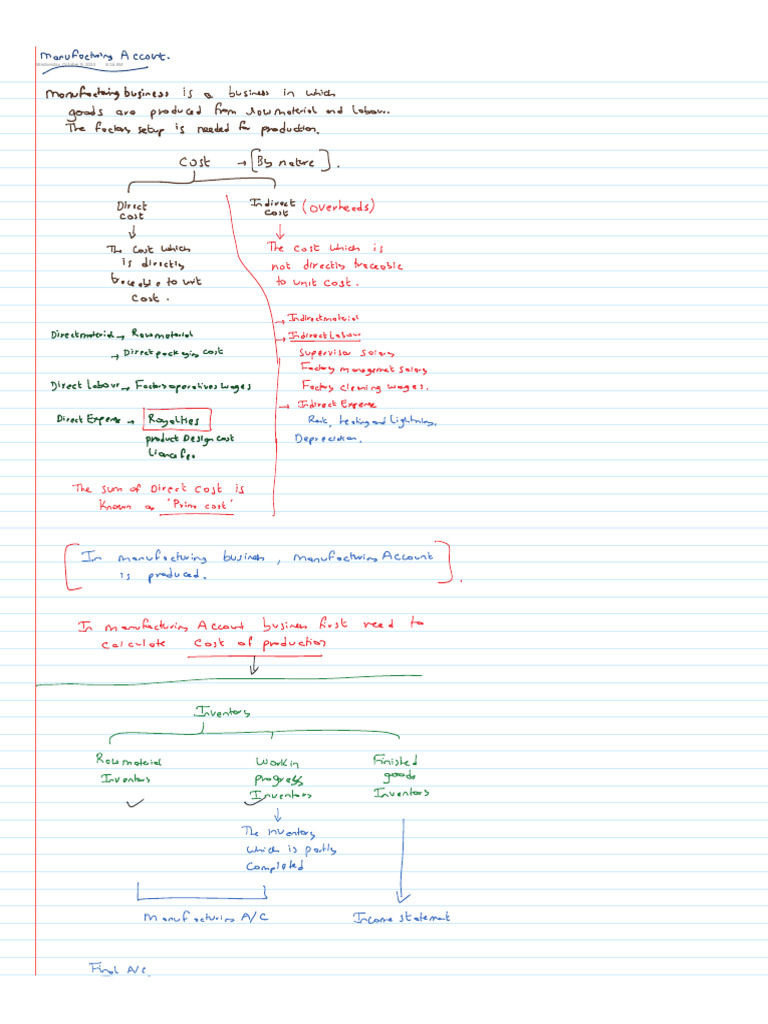 Manufacturing Account.
Wednesday, October 9, 2019 8:06 AM
Manufacturing business is a business in which
goods are produced from raw material and labour.
The factory setup is needed for production.
Cost → [By nature].
Direct
cost
Indirect
cost (overheads)
The cost which
is directly
traceable to unit
cost.
The cost which is
not directly traceable
to unit cost.
Direct material → Raw material
→ Direct packaging cost
Direct Labour → Factory operatives wages
Direct Expense → Royalties
product Design cost
→ Indirect material
→ Indirect Labour
Supervisor salary
Factory management salary
Factory cleaning wages.
→ Indirect Expense
Rent, heating and Lightning,
Depreciation.
The sum of Direct cost is
known as "Prime cost"
[In manufacturing business, manufacturing Account
is produced.].
In manufacturing Account business first need to
calculate cost of production
Inventory
Raw material
Inventory
Work in
progress
Inventory
Finished
goods
Inventory
The inventory
which is partly
completed
Manufacturing A/C
Income statement
Final A/C